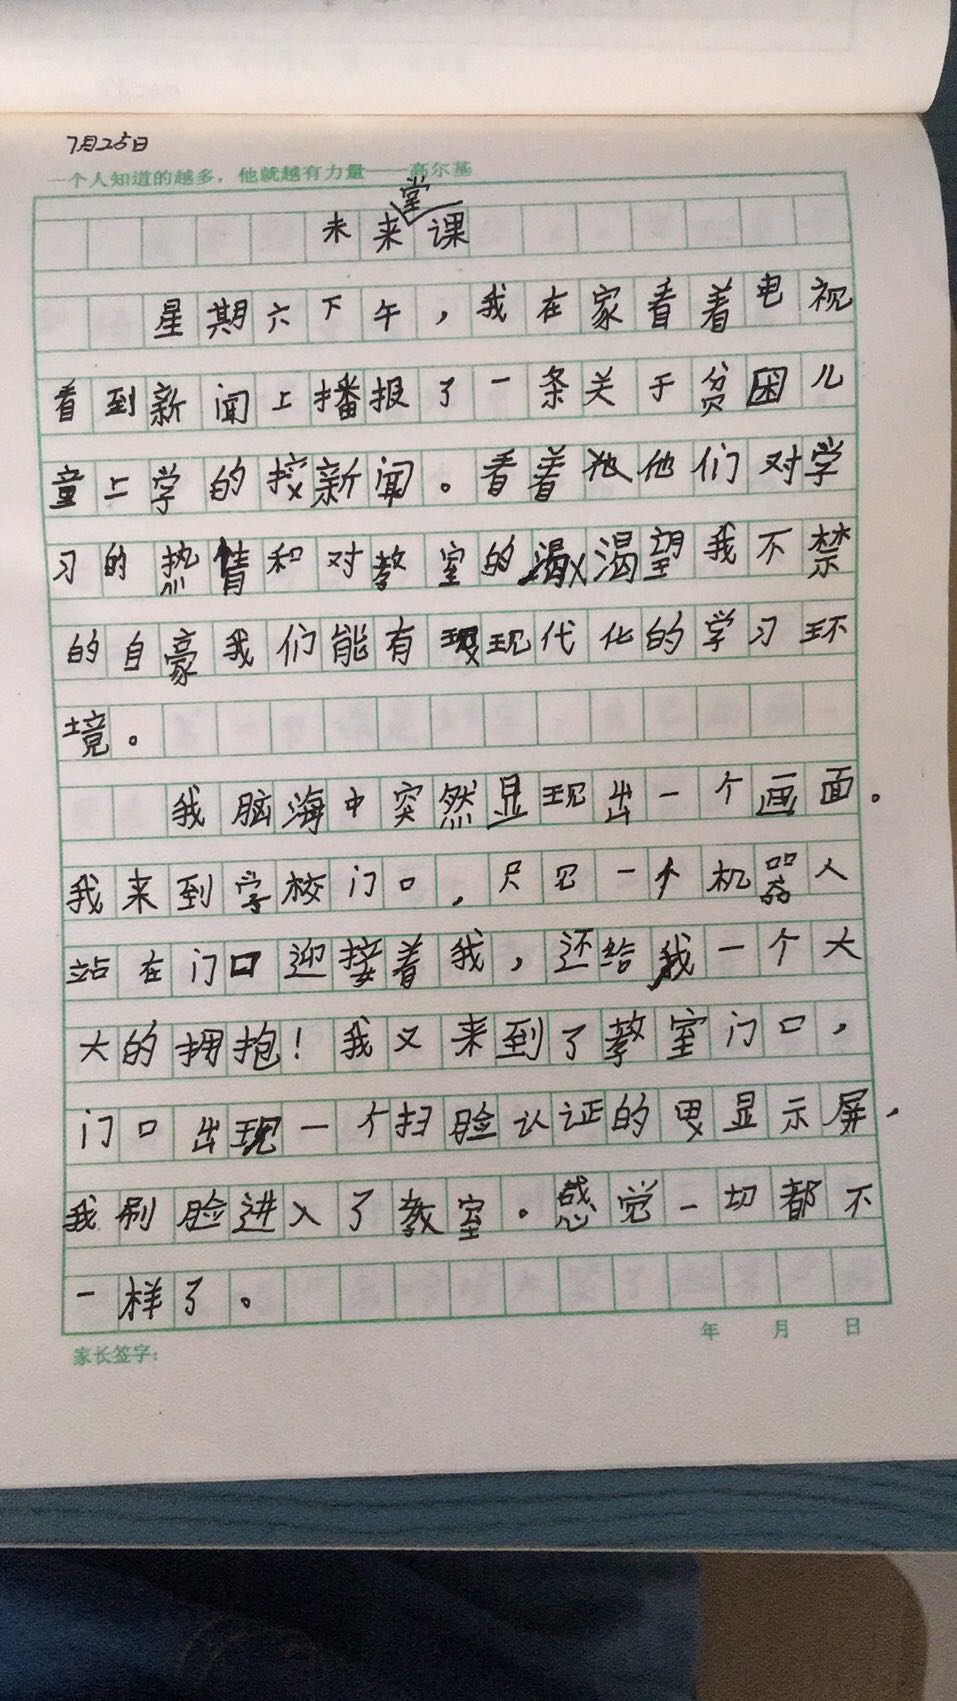 7月25日
一个人知道的越多，他就越有力量——高尔基
未来课堂
星期六下午，我在家看着电视
看到新闻上播报了一条关于贫困儿
童上学的新闻。看着他们对学
习的热情和对教室的渴望我不禁
的自豪我们能有现代化的学习环
境。
我脑海中突然显现出一个画面。
我来到学校门口，只见一个机器人
站在门口迎接着我，还给我一个大
大的拥抱！我又来到了教室门口，
门口出现一个扫脸认证的显示屏，
我刷脸进入了教室。感觉一切都不
一样了。
家长签字： 年 月 日